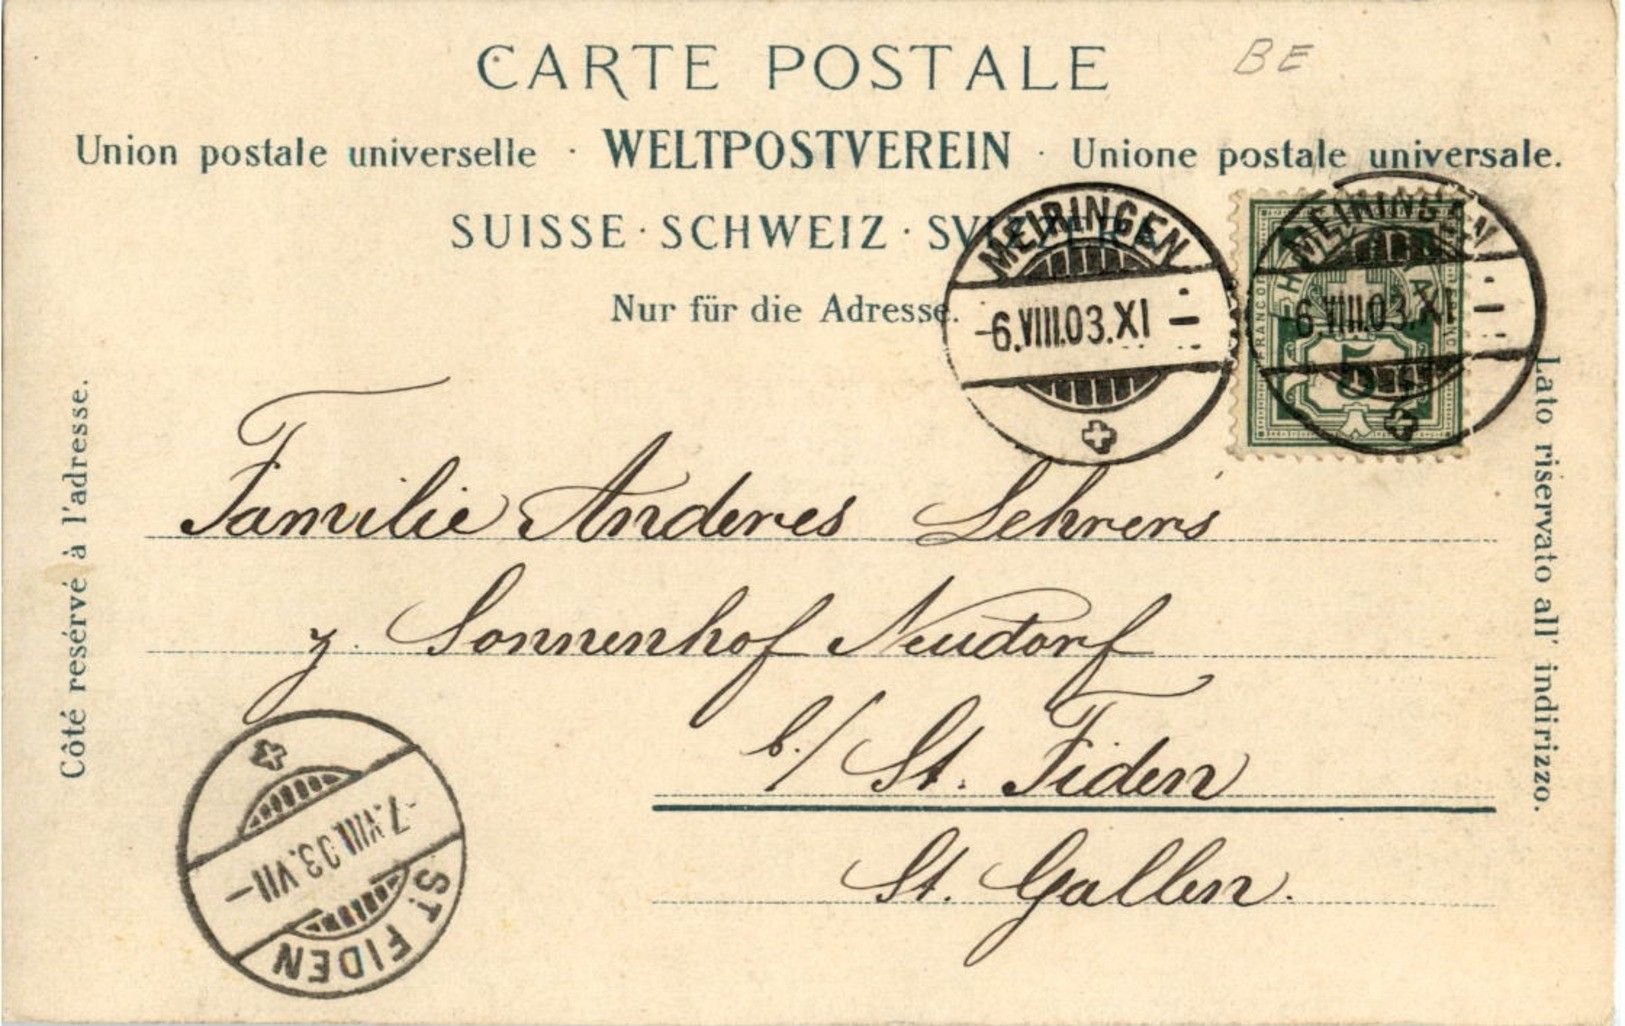 CARTE POSTALE
BE
Union postale universelle · WELTPOSTVEREIN · Unione postale universale.
SUISSE · SCHWEIZ · SVIZZERA
Nur für die Adresse.
MEIRINGEN
-6.VIII.03.XI -
MEIRINGEN
6.VIII.03.XI -
FRANCO
5
Côté resérvé à l'adresse.
Lato riservato all' indirizzo.
Familie Anderes Lehrers
z. Sonnenhof Neudorf
b./ St. Fiden
St. Gallen.
-7.VIII.03.VII-
ST FIDEN